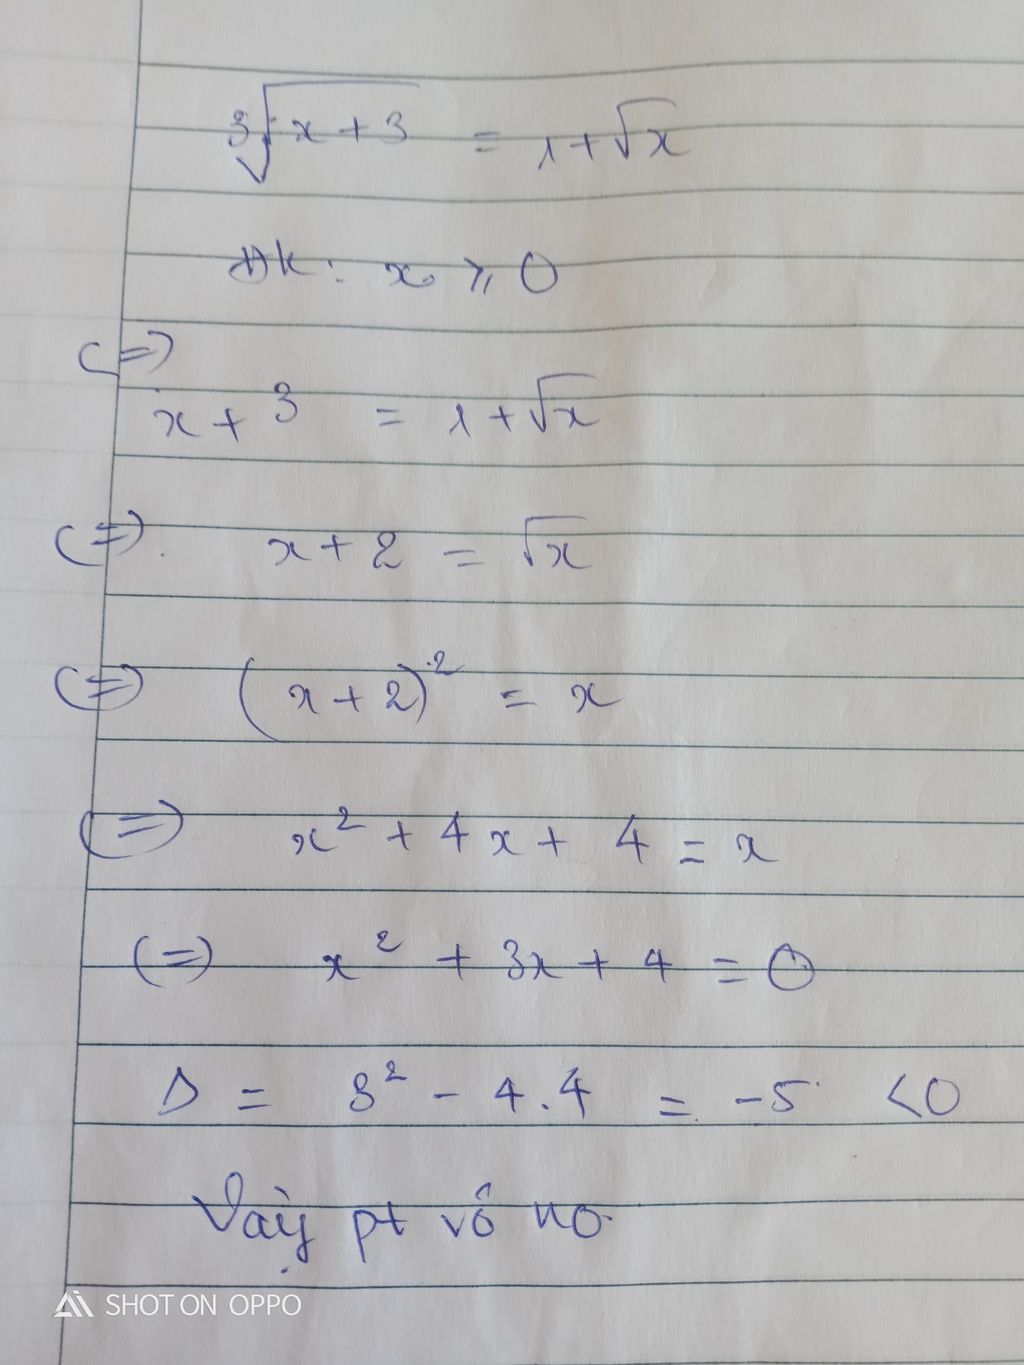 ∛(x + 3) = 1 + √x
ĐK: x ⩾ 0
(=)
x + 3 = 1 + √x
(=) x + 2 = √x
(=) (x + 2)² = x
(=) x² + 4x + 4 = x
(=) x² + 3x + 4 = 0
Δ = 3² - 4.4 = -5 <0
Vậy pt vô no.
SHOT ON OPPO